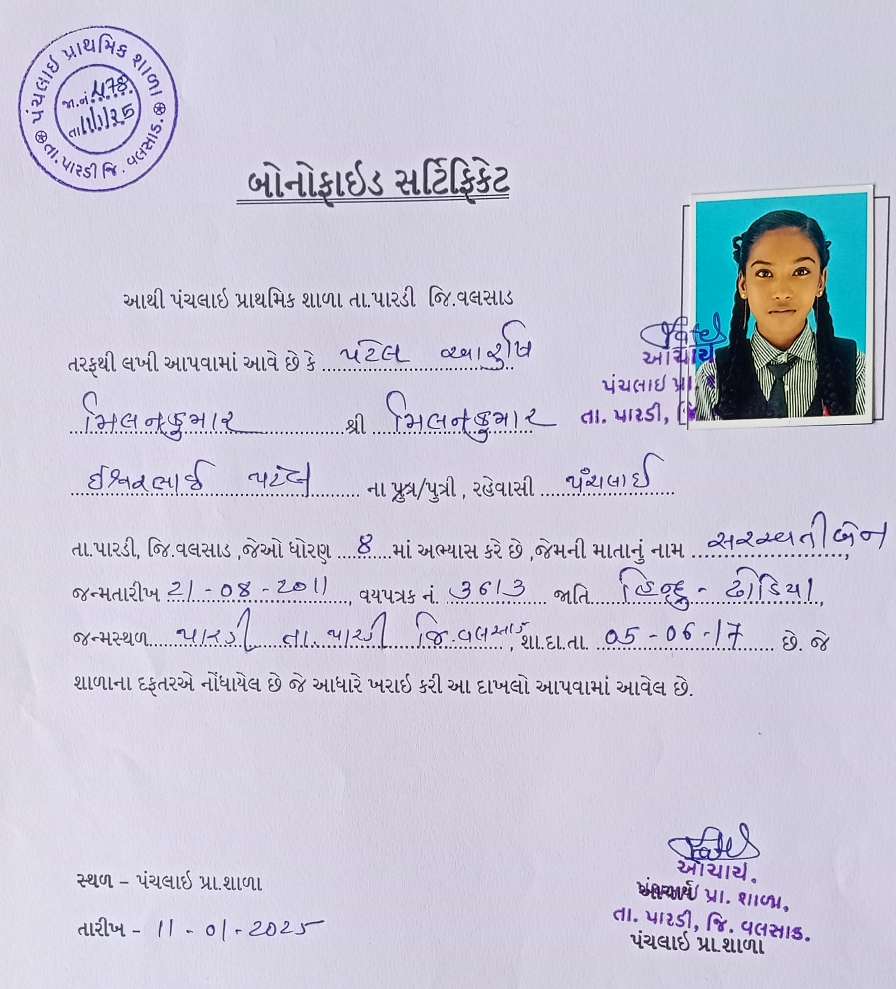 પંચલાઇ પ્રાથમિક શાળા
જા.નં. 478
તા. 11/1/25
તા. પારડી જિ. વલસાડ.
બોનોફાઇડ સર્ટિફિકેટ
આથી પંચલાઇ પ્રાથમિક શાળા તા.પારડી જિ.વલસાડ
તરફથી લખી આપવામાં આવે છે કે પટેલ આરુષિ
મિલનકુમાર શ્રી મિલનકુમાર
ઈશ્વરભાઈ પટેલ ના પુત્ર/પુત્રી , રહેવાસી પંચલાઈ
તા.પારડી, જિ.વલસાડ ,જેઓ ધોરણ 8 માં અભ્યાસ કરે છે ,જેમની માતાનું નામ સરસ્વતીબેન,
જન્મતારીખ 21-08-2011, વયપત્રક નં. 3613 જાતિ હિન્દુ - ઢોડિયા,
જન્મસ્થળ પારડી તા. પારડી જિ.વલસાડ, શા.દા.તા. 05-06-17 છે. જે
શાળાના દફતરએ નોંધાયેલ છે જે આધારે ખરાઇ કરી આ દાખલો આપવામાં આવેલ છે.
Patel
આચાર્ય
પંચલાઇ પ્રા.
તા. પારડી,
સ્થળ – પંચલાઇ પ્રા.શાળા
તારીખ - 11-01-2025
Patel
આચાર્ય.
પ્રા. શાળા,
તા. પારડી, જિ. વલસાડ.
પંચલાઇ પ્રા.શાળા